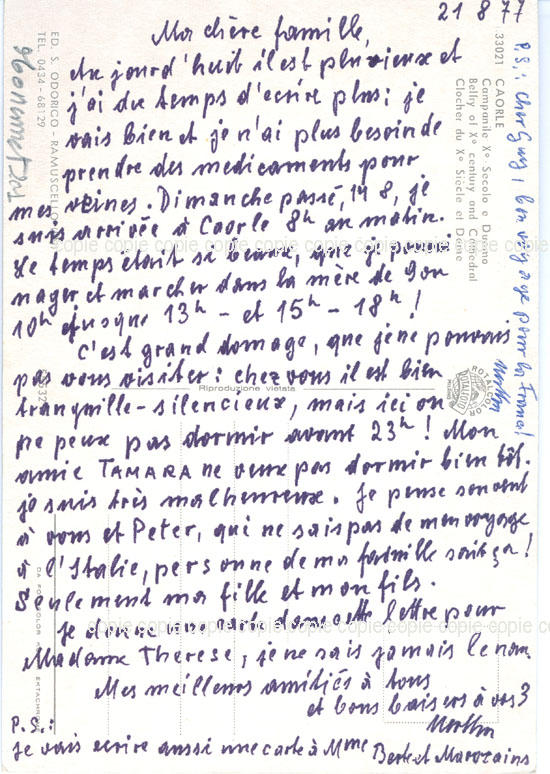 21 8 77
Ma chère famille,
Au jourd'huit il est pluvieux et
j'ai du temps d'ecrire plus; je
vais bien et je n'ai plus besoin de
prendre des medicaments pour
mes veines. Dimanche passé, 14 8, je
suis arrivée à Caorle 8h au matin.
Le temps était si beaux, que je
nager et marcher dans la mère de 9 on
10h jusque 13h - et 15h - 18h!
C'est grand domage, que je ne pouvais
pas vous visiter: chez vous il est bien
tranquille - silencieux, mais ici on
ne peux pas dormir avant 23h! Mon
amie TAMARA ne veux pas dormir bientôt.
je suis très malheureux. Je pense souvent
à vous et Peter, qui ne sais pas de mon voyage
à l'Italie, personne de ma familie sait ça!
Seulement ma fille et mon fils.
Je donne une carte dans cette lettre pour
Madame Therese, je ne sais jamais le nom.
Mes meilleurs amitiés à tous
et bons baisers à vos 3
P.S.:
je vais ecrire aussi une carte à Mme Berte et Marozains
P.S.: cher Guy, bon voyage pour la France!
33021 CAORLE
Campanile X° Secolo e Duomo
Belfry of X° century and Cathedral
Clocher du X° Siècle et Dôme
ED. S. ODORICO - RAMUSCELLO
TEL. 0434 - 68129
Riproduzione vietata
ROTALCOLOR
DA FOTOCOLOR
EKTACHROME
copie copie copie copie copie copie copie copie copie copie
copie copie copie copie copie copie copie copie copie copie